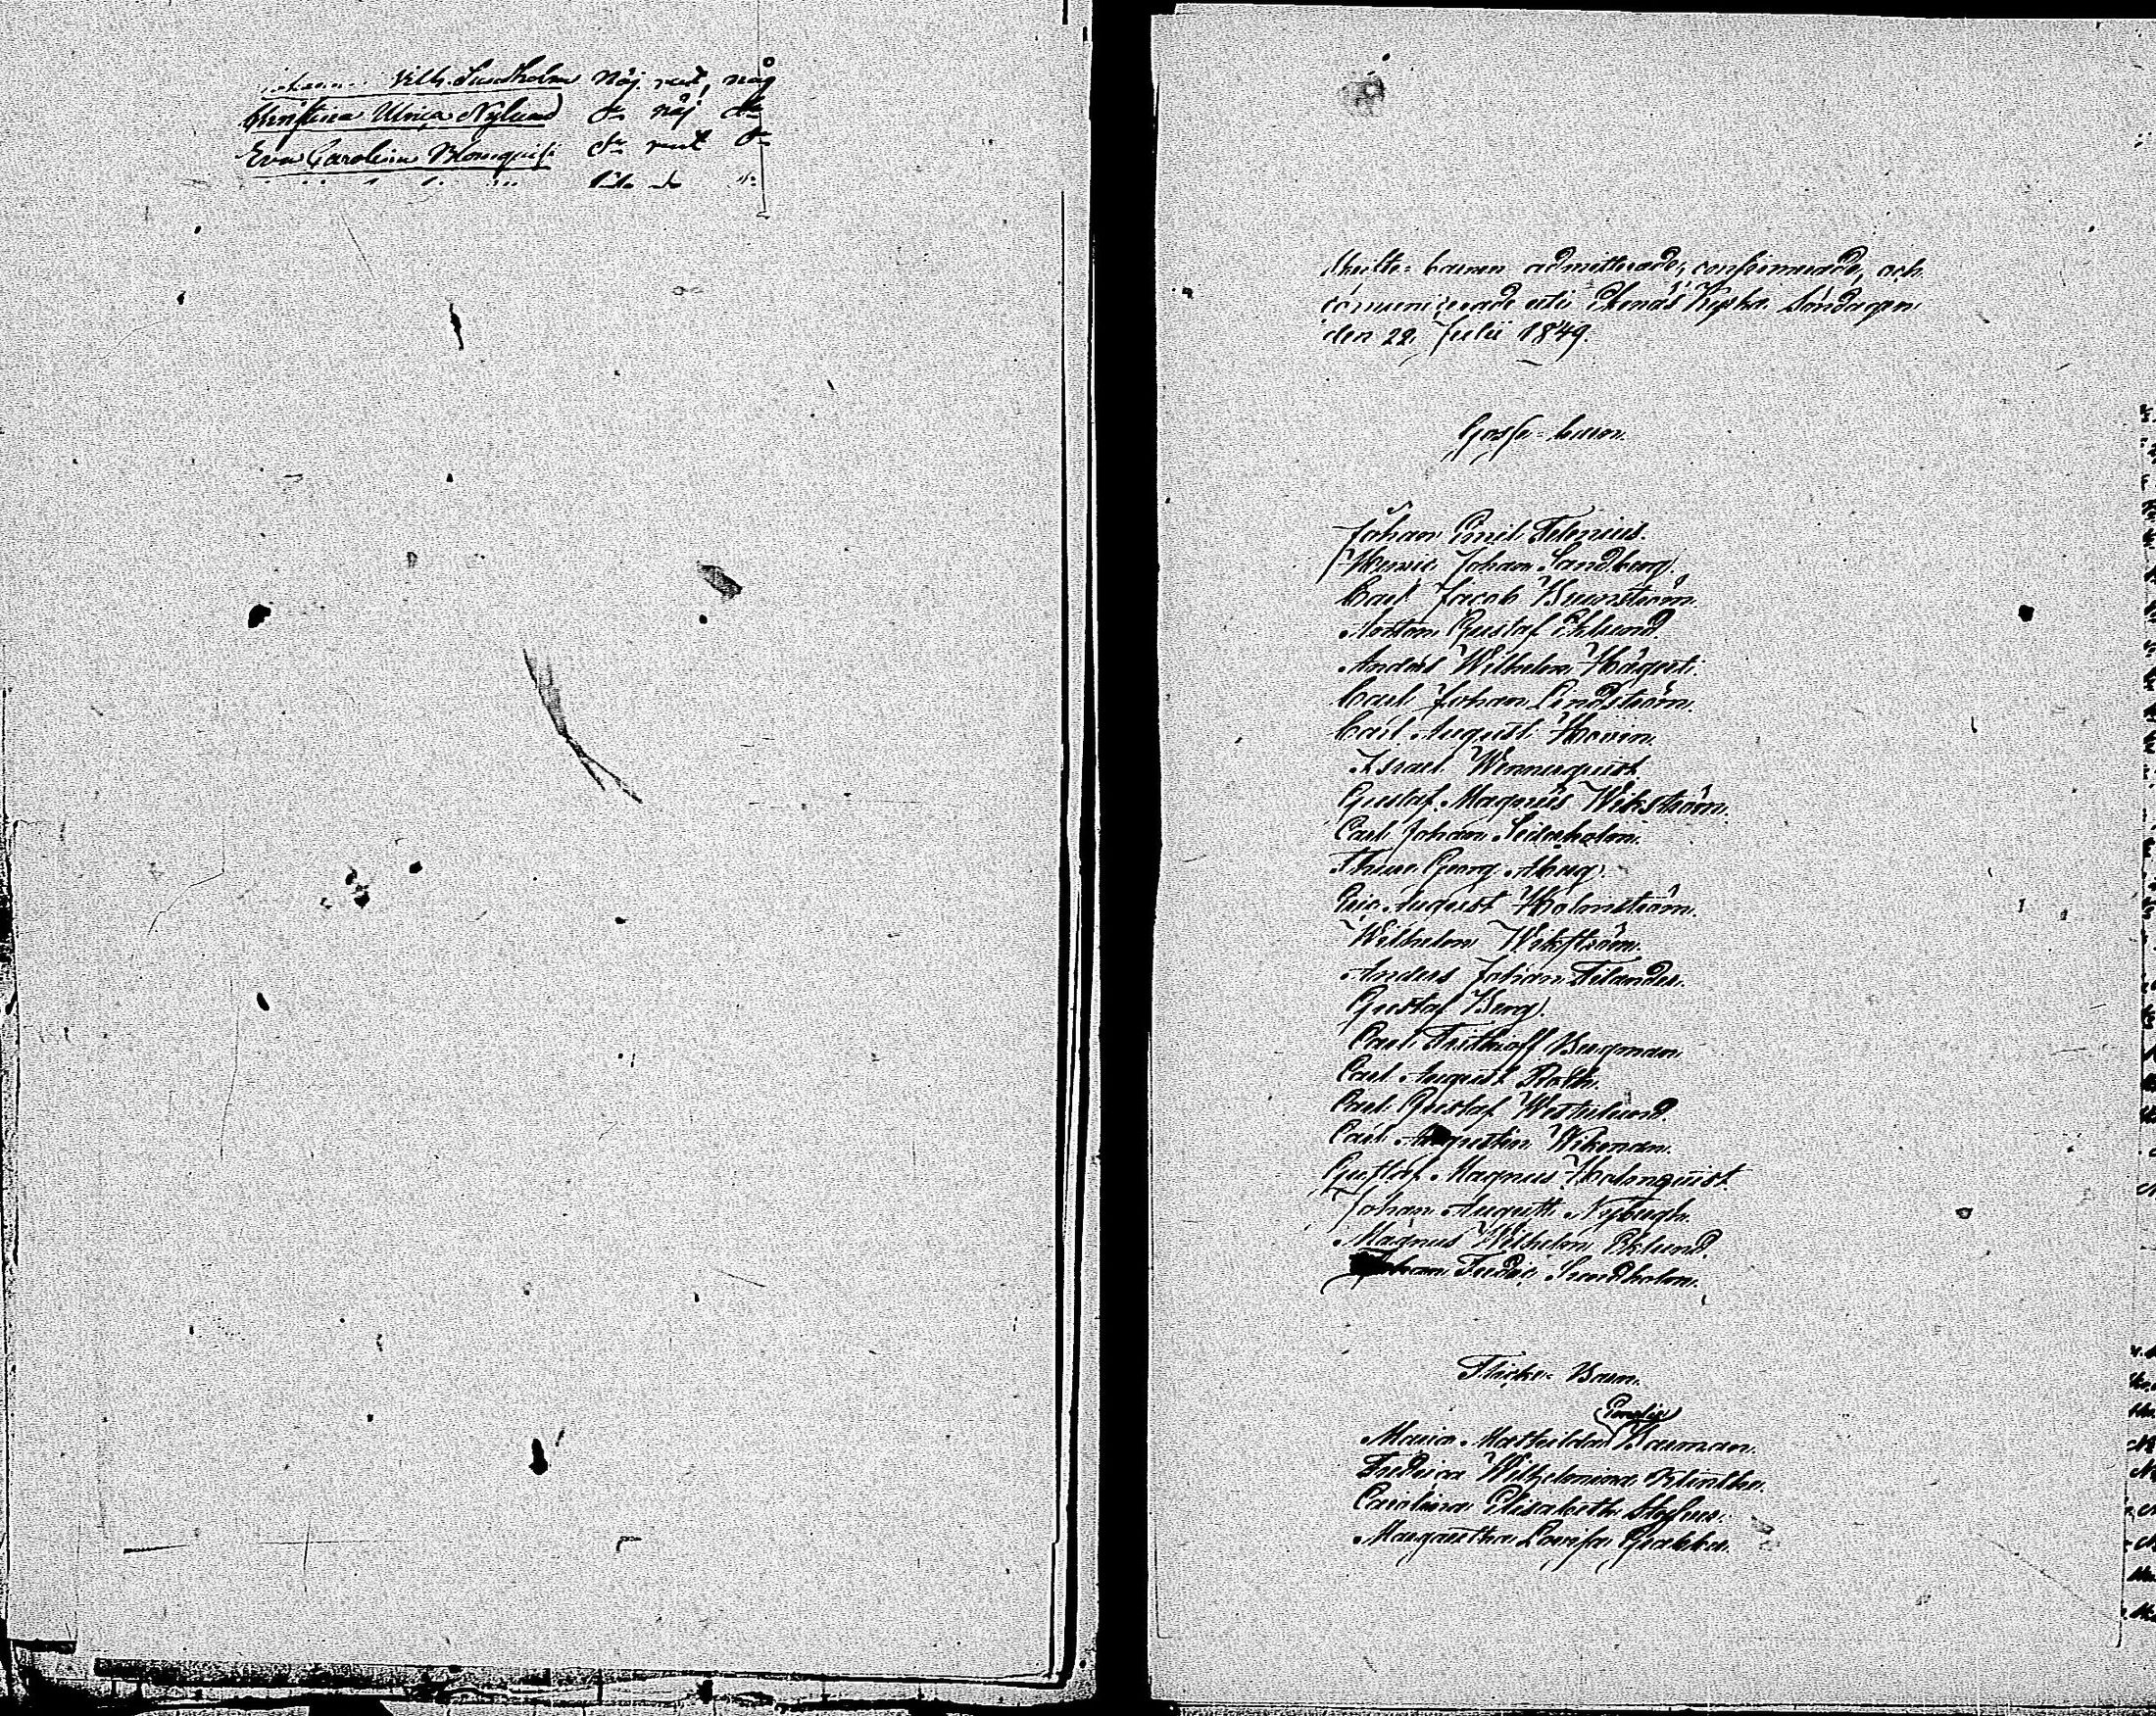 Vilh. Sundholm Nöj. rent, nog
Christina Ulrica Nylund do nöj do
Eva Carolina Blomquist do rent do
barnen admitterade, confirmerade, och
communicerade uti Ekenäs Kyrka Söndagen
den 22 Julii 1849.
Gosse-barn.
Johan Emil Felenius.
Henric Johan Sandberg.
Carl Jacob Brunström.
Anton Gustaf Eklund.
Anders Wilhelm Hägert.
Carl Johan Lindström.
Carl August Horin.
Israel Wennerquist
Gustaf Magnus Wikström.
Carl Johan Söderholm.
Thure Georg Åberg.
Eric August Holmström.
Wilhelm Wikström.
Anders Johan Filander.
Gustaf Berg.
Carl Frithioff Bergman
Carl August Roth.
Carl Gustaf Westerlund.
Carl Augustin Wikman.
Gustaf Magnus Holmquist.
Johan August Nybergh.
Magnus Wilhelm Eklund.
Johan Fredric Sundholm.
Flicke-Barn.
Emelie
Maria Mathilda Barman.
Fredrica Wilhelmina Klinthe.
Carolina Elisabeth
Margaretha Lovisa